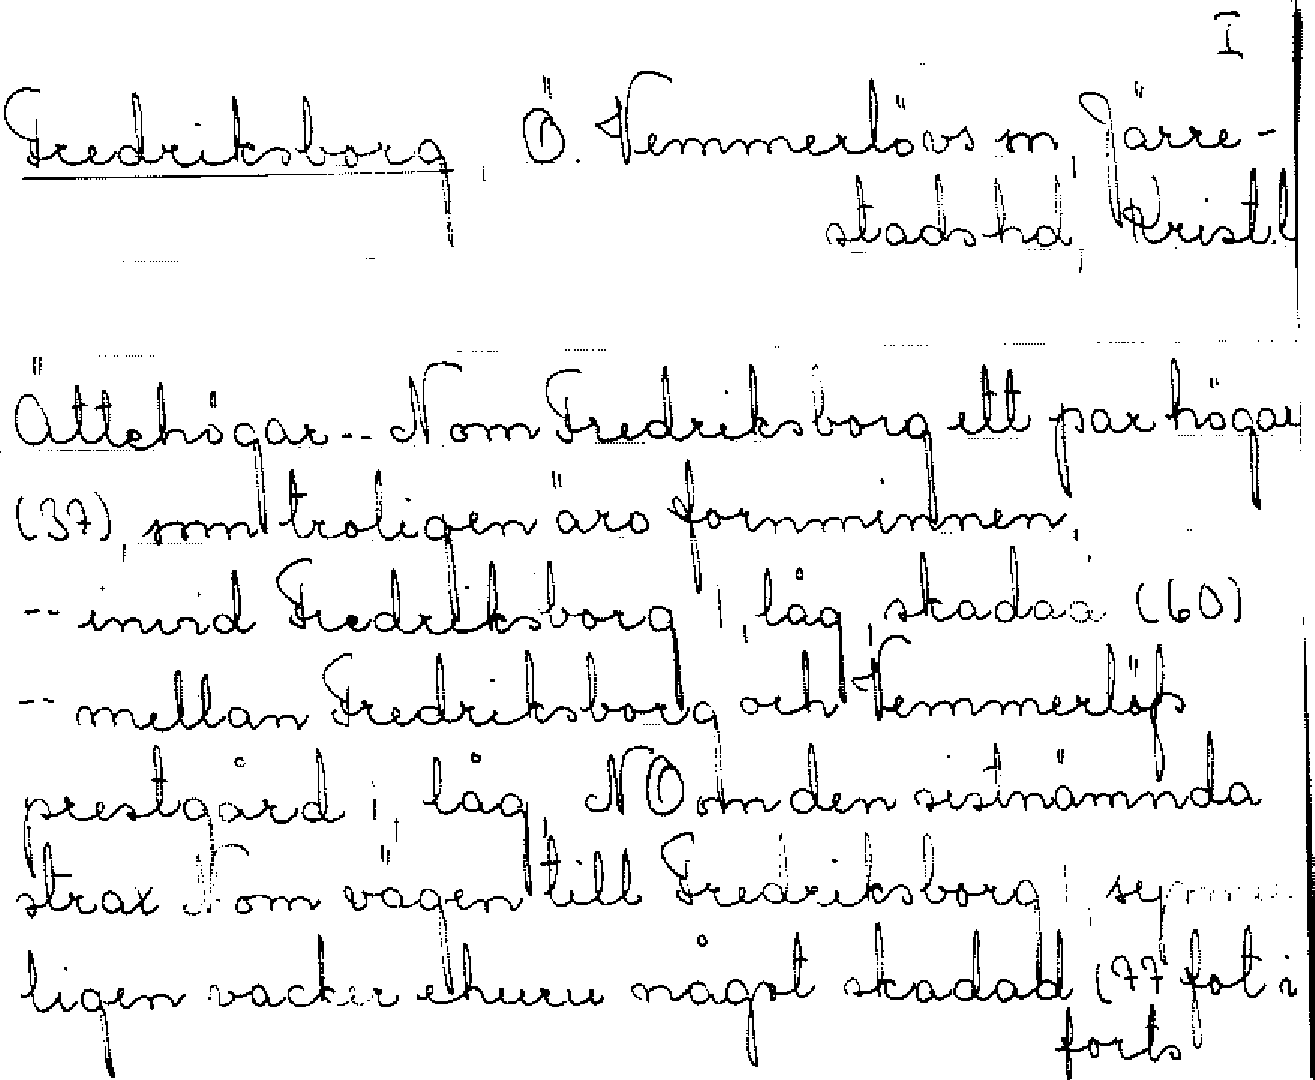 I
Fredriksborg, Ö. Vemmerlövs sn, Järre-
stads hd, Krist.l
Ättehögar -- N om Fredriksborg ett par högar
(37), som troligen äro fornminnen,
-- invid Fredriksborg 1, låg, skadad (60)
-- mellan Fredriksborg och Vemmerlöfs
prestgård 1, låg, NO om den sistnämnda
strax N om vägen till Fredriksborg 1, synner
ligen vacker ehuru något skadad (77 fot i
forts